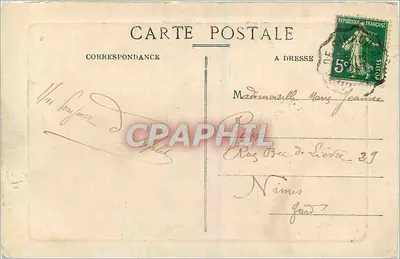 CARTE POSTALE
CORRESPONDANCE
A DRESSE
REPUBLIQUE FRANÇAISE
5c
POSTES
DE
Mademoiselle Marie Jeanne
R
Rue Bec de Lièvre 29
Nîmes
Gard
Un bonjour d
CPAPHIL